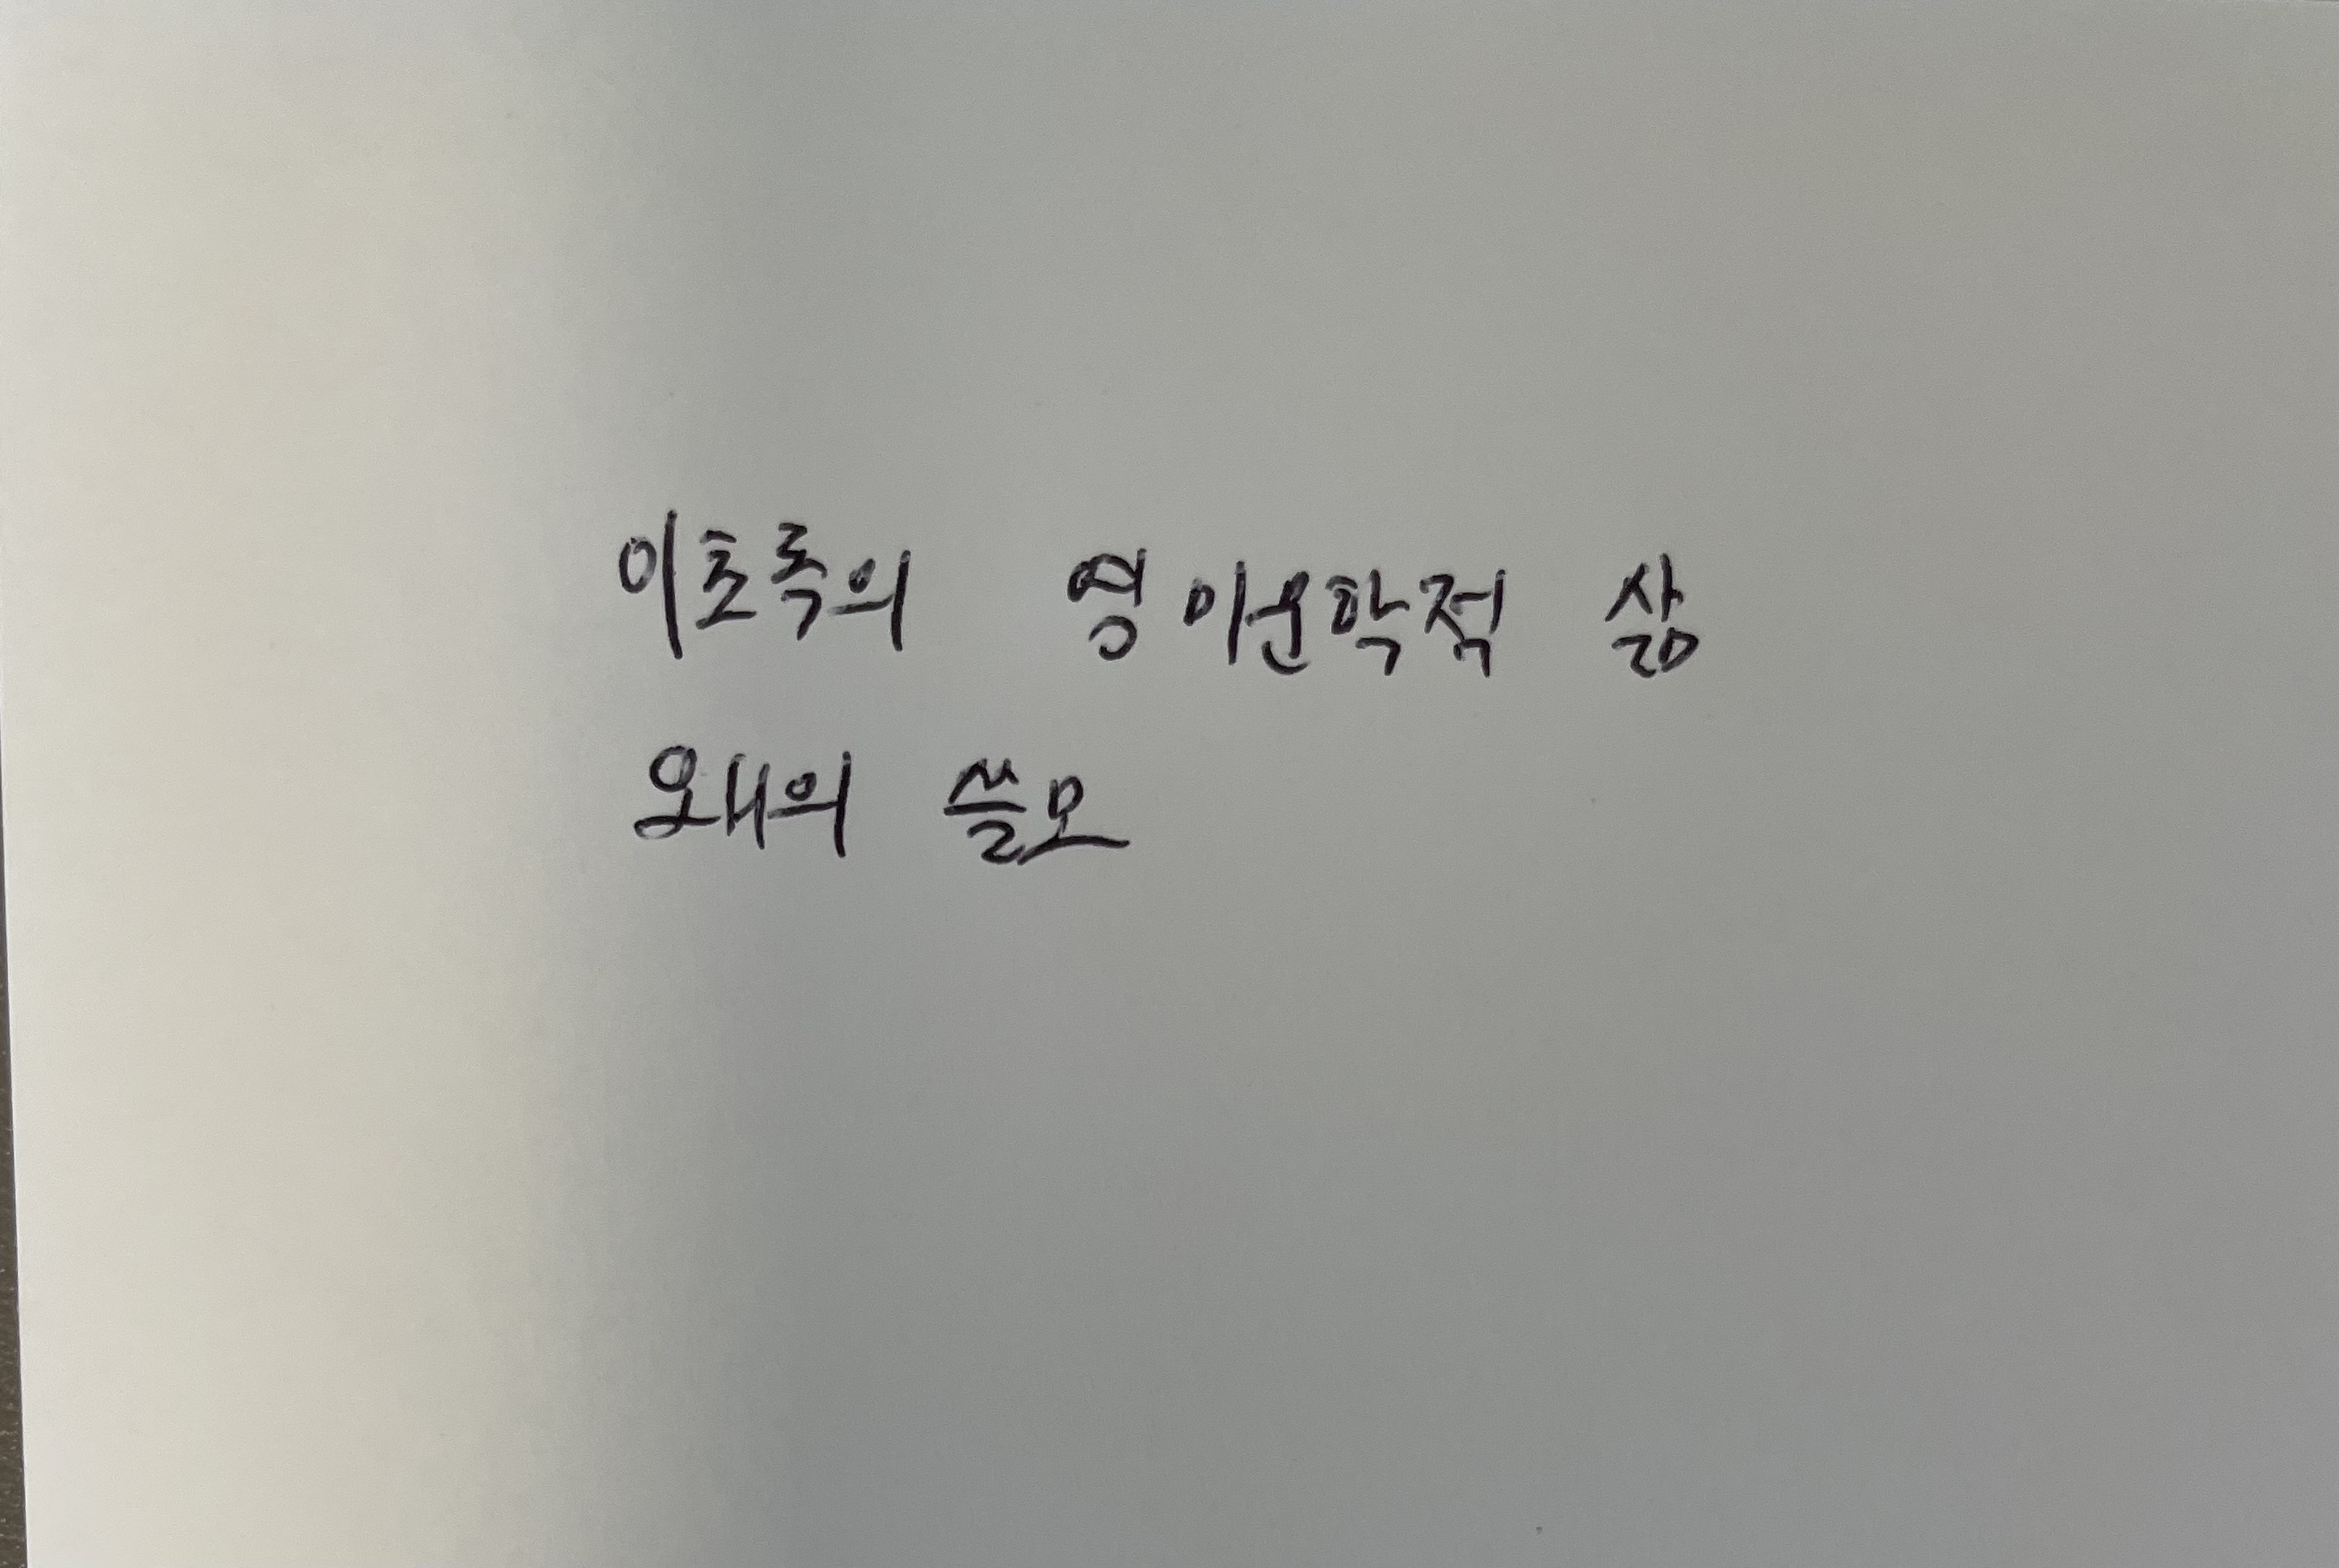 이초록의 영미문학적 삶
왜의 쓸모